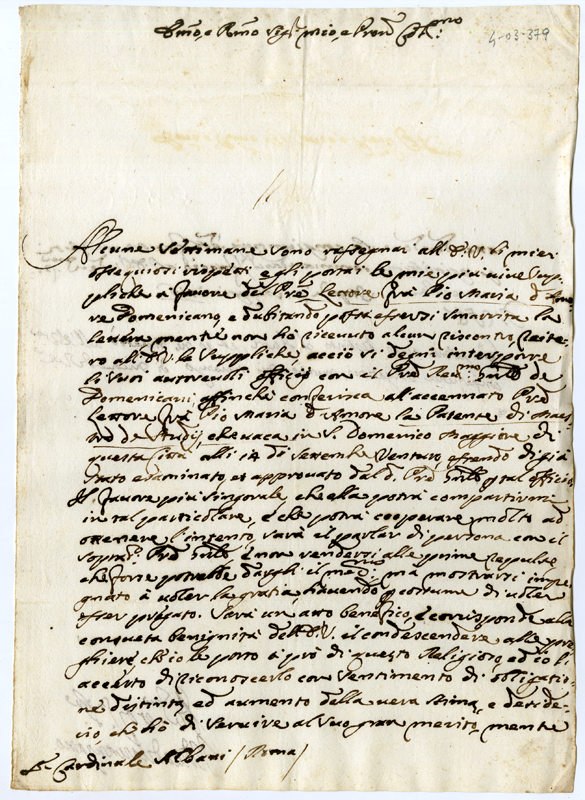 Em̃o, e Rm̃o Sig.r mio, e Pron Col.mo
4-03-379
Alcune Settimane sono rassegnai all'E.V. li miei
ossequiosi rispetti e gli portai le mie piu vive supp-
pliche à favore del Pre Lettore frà Pio Maria d'Amo-
re Domenicano, e dubitando possa essersi smarrita la
lettera mentre non hò ricevuto alcun riscontro, reite-
ro all'E.V. le suppliche acciò si degni interporre
li suoi autorevoli officij con il Pre Rev.mo Gnle de
Domenicani, affinche conferisca all'accennato Pre
lettore frà Pio Maria d'Amore la Patente di Maes-
tro de Studij, che vaca in S. Domenico Maggiore di
questa Città alli 14 di Settembre venturo, essendo di già
stato esaminato, et approvato dal d. Pre Gnle p tal officio
Il favore piu singolare che ella potrà compartirmi
in tal particolare, e che potrà cooperare molto ad
ottenere l'intento sarà el parlar di persona con il
sopra.to Pre Gnle, e non rendersi alle prime repulse
che forse potrebbe dargli il med.mo, mà mostrarsi impe-
gnato à voler la gratia havendo p costume di voler
esser pregato. Sarà un atto benefico, e corrisponde alla
consueta benignità dell'E.V. il condescendere alle pre-
ghiere, ch'io le porto à prò di questo Religioso, ed io l'
accerto di riconoscerlo con sentimento di obligatio-
ne distinta ed aumento della vera stima, e deside-
rio che hò di servire al suo gran merito, mentre
S.r Cardinale Albani / Roma /